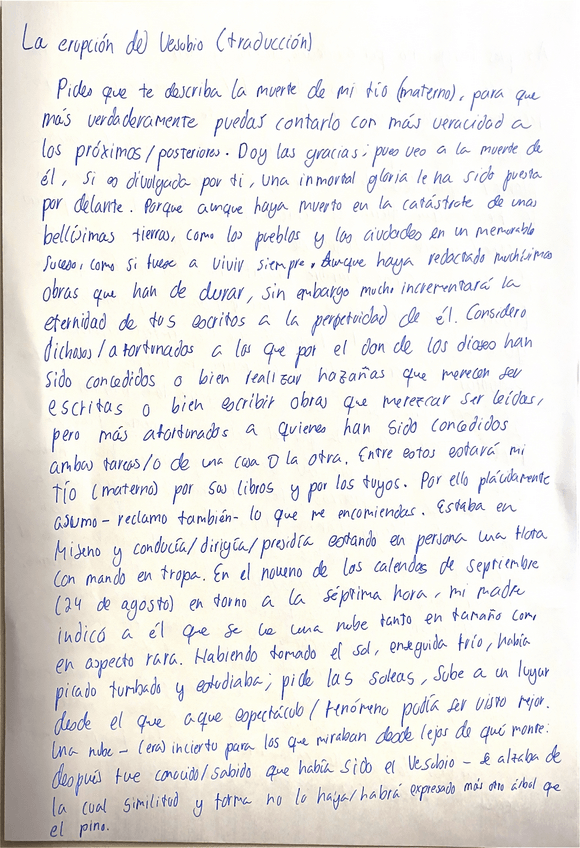 La erupción del Vesubio (traducción)
Pides que te describa la muerte de mi tío (materno), para que
más verdaderamente puedas contarlo con más veracidad a
los próximos/posteriores. Doy las gracias; pues veo a la muerte de
él, si es divulgada por ti, una inmortal gloria le ha sido puesta
por delante. Porque aunque haya muerto en la catástrofe de unas
bellísimas tierras, como los pueblos y las ciudades en un memorable
suceso, como si fuese a vivir siempre. Aunque haya redactado muchísimas
obras que han de durar, sin embargo mucho incrementará la
eternidad de tus escritos a la perpetuidad de él. Considero
dichosos/afortunados a los que por el don de los dioses han
sido concedidos o bien realizar hazañas que merecen ser
escritas o bien escribir obras que merezcan ser leídas,
pero más afortunados a quienes han sido concedidos
ambas tareas/o de una cosa o la otra. Entre estos estará mi
tío (materno) por sus libros y por los tuyos. Por ello plácidamente
asumo - reclamo también - lo que me encomiendas. Estaba en
Miseno y conducía/dirigía/presidía estando en persona una flota
con mando en tropa. En el noveno de las calendas de septiembre
(24 de agosto) en torno a la séptima hora, mi madre
indicó a él que se ve una nube tanto en tamaño como
en aspecto rara. Habiendo tomado el sol, enseguida frío, había
picado tumbado y estudiaba; pide las soleas, sube a un lugar
desde el que aque espectáculo/fenómeno podía ser visto mejor.
Una nube - (era) incierto para los que miraban desde lejos de qué monte:
después fue conocido/sabido que había sido el Vesubio - se alzaba de
la cual similitud y forma no lo haya/habrá expresado más otro árbol que
el pino.